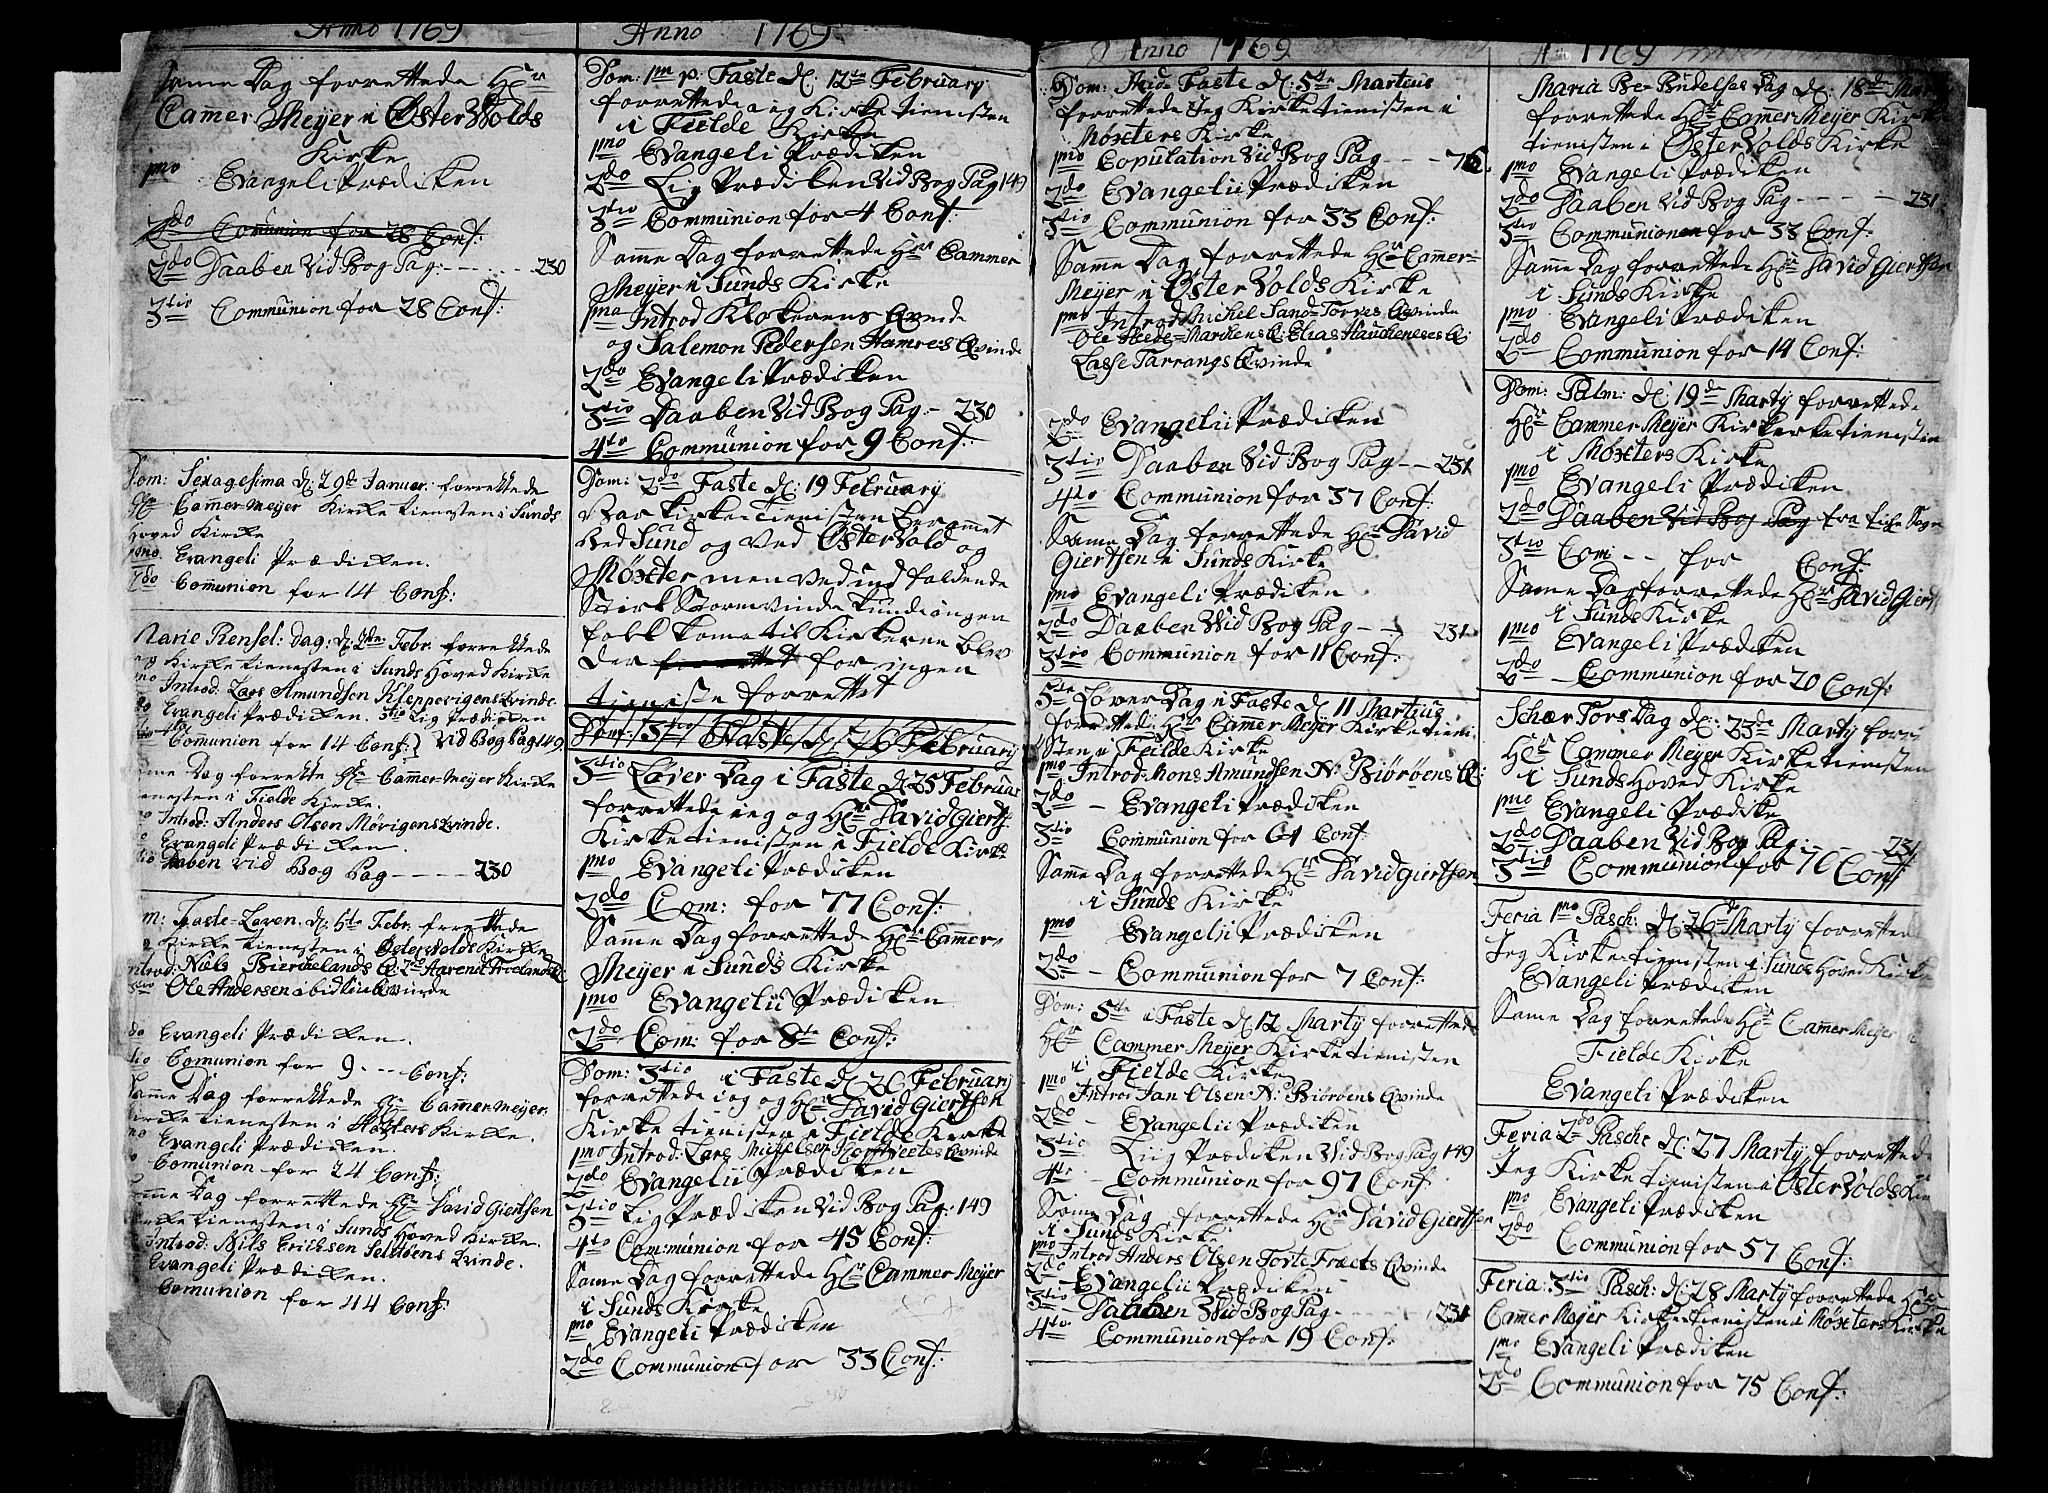 Anno 1769
Samme Dag forrettede Hr
Camer Meijer i Østervolds
Kirke
1mo Evangeli Prædicken
2do Comunion for 28 Conf:
2do Daaben Vid Bog Pag: 230
3tio Communion for 28 Conf:
Dom: Sexagesima d: 29de Januer: forrettede
Hr Camer Meyer Kirke tienesten i Sunds
Hoved Kirke
1mo Evangeli Prædicken.
2do Communion for 14 Conf:
Marie Rensel: Dag: d: 2den Febr: forrettede
Kirke tienesten i Sunds Hoved Kirke
Introd: Lars Amundsen Kleppevigens Qvinde.
Evangeli Prædicken. 3tio Lig Prædicken
Communion for 14 Conf: Vid Bog Pag 149
Samme Dag forrette Hr Camer Meyer Kirke
tienesten i Fielde Kirke.
Introd: Anders Olsen Mørigens Qvinde.
Evangeli Prædicken.
Daaben Vid Bog Pag - - - - 230
Dom: Faste-Laven. d: 5te Febr: forrettede
Kirke tienesten i Østervolds Kirke
Introd: Niels Bierchelands Q: 2do Aarend Trælands Q
3tio Ole Andersen ibid: Qvinde
Evangeli Prædicken.
Comunion for 9 - - - Conf:
Samme Dag forrettede Hr Cammer Meyer
Kirke tienesten i Møxters Kirke.
Evangeli Prædicken.
Comunion for 24 Conf:
Samme Dag forrettede Hr David Giertsen
Kirke tienesten i Sunds Hoved Kirke.
Introd: Nils Ericksen Selsbens Qvinde.
Evangeli Prædicken.
Comunion for 44 Conf:
Anno 1769
Dom: 1ma p: Faste d: 12te Februarij
forrettede ieg Kirke tienisten
i Fielde Kirke
1mo Evangeli Prædicken
2do Lig Prædicken Vid Bog Pag 149
3tio Communion for 4 Conf:
Samme Dag forrettede Hr Cammer
Meijer i Sunds Kirke
1mo Introd Klokerens Qvinde
og Salemon Pedersen Hamres Qvinde
2do Evangeli Prædicken
3tio Daaben Vid Bog Pag - 230
4to Communion for 9 Conf:
Dom: 2do Faste d: 19 Februarij
Var Kirke-Tienisten beramet
Ved Sund og Ved Østervold og
Møxter men Ved ind faldende
Stirk Stormvinde kunde ingen
folk kome til Kirkerne blev
der forrettet for ingen
tieniste forrettet
Dom: 3tio Faste d: 26 Februarij
3tio Løver Dag i Faste d: 25 Februar
forrettede ieg og Hr David Gierts:
Kirke tienisten i Fielde Kirke
1mo Evangeli Prædicken
2do Com: for 77 Conf:
Samme Dag forrettede Hr Cammer
Meijer i Sunds Kirke
1mo Evangelii Prædicken
2do Com: for 8te Conf:
Dom: 3tio i Faste d: 26 Februarij
forrettede ieg og Hr David Giertsen
Kirke tienisten i Fielde Kirke
1mo Introd: Lars Mickelsen Qvinde
2do Evangelii Prædicken
3tio Lig Prædicken Vid Bog Pag: 149
4to Communion for 45 Conf:
Same Dag forrettede Hr Cammer Meijer
i Sunds Kirke
1mo Evangeli Prædicken
2do Communion for 33 Conf:
Anno 1769
Dom: Mid-Faste d: 5te Martius
forrettede Jeg Kirke tienisten i
Møxters Kirke
1mo Copulation Vid Bog Pag - - - 76.
2do Evangelii Prædicken
3tio Communion for 33 Conf:
Samme Dag forrettede Hr Camer-
Meijer i Østervolds Kirke
1mo Introd Michel Sand-Torves Qvinde
Ole Q: Elias Q:
Lasse Tarrangs Qvinde
2do Evangelii Prædicken
3tio Daaben Vid Bog Pag - - 231
4to Communion for 37 Conf:
Same Dag forrettede Hr David
Giertsen i Sunds Kirke
1mo Evangeli Prædicken
2do Daaben Vid Bog Pag - - 231
3tio Communion for 11 Conf:
5te Løver Dag i Faste d: 11 Martius
forrettede Hr Camer Meijer Kirke tieni
sten i Fielde Kirke
1mo Introd: Mons Amundsen N: Biørøens Q:
2do - Evangeli Prædicken
3tio Communion for 61 Conf:
Same Dag forrettede Hr David Giertsen
i Sunds Kirke
1mo Evangelii Prædicken
2do - Communion for 7 Conf:
Dom: 5te i Faste d: 12 Martij forrettede
Hr Cammer Meijer Kirke tienisten
i Fielde Kirke
1mo Introd Jan Olsen N: Biørøens Qvinde
2do - Evangelii Prædicken
3tio - Liig Prædicken Vid Bog Pag 149
4to - Communion for 97 Conf:
Same Dag forrettede Hr David Giertsen
i Sunds Kirke
1mo Introd Anders Olsen Qvinde
2do - Evangelii Prædicken
3tio - Daaben Vid Bog Pag - - - 231
4to - Communion for 19 Conf:
A 1769
Maria Be-Budelses Dag d: 18de Martij
forrettede Hr Camer Meijer Kirke
tienisten i Østervolds Kirke
1mo Evangeli Prædicken
2do Daaben Vid Bog Pag - - - - 231
3tio Communion for 33 Conf:
Samme Dag forrettede Hr David Giertsen
i Sunds Kirke
1mo Evangeli Prædicken
2do - Communion for 14 Conf:
Dom: Palm: d: 19de Martij forrettede
Hr Cammer Meijer Kirkerke tienisten
i Møxters Kirke
1mo Evangeli Prædicken
2do Daaben Vid Bog Pag fra Sogn
3tio Com - - for Conf:
Same Dag forrettede Hr David Gierts
i Sunds Kirke
1mo Evangeli Prædicken
2do - Communion for 20 Conf:
Schær Tors Dag d: 23de Martij forre
Hr Cammer Meijer Kirke tienisten
i Sunds Hoved Kirke
1mo Evangeli Prædicken
2do Daaben Vid Bog Pag: - - 231
3tio Communion for 76 Conf
Feria 1mo Pasch: d: 26de Martij forrettede
Jeg Kirke tienisten i Sunds Hoved Kirke
Evangeli Prædicken
Same Dag forrettede Hr Camer Meijer i
Fielde Kirke
Evangeli Prædicken
Feria 2do Pasche d: 27 Martij forrettede
Jeg Kirke tienisten i Østervolds Kir
1mo Evangeli Prædicken
2do Communion for 57 Conf:
Feria: 3tio Pasch: d: 28 Martij forrettede Hr
Camer Meijer Kirke tienisten i Møxters Kirke
1mo Evangeli Prædicken
2do - Communion for 75 Conf: